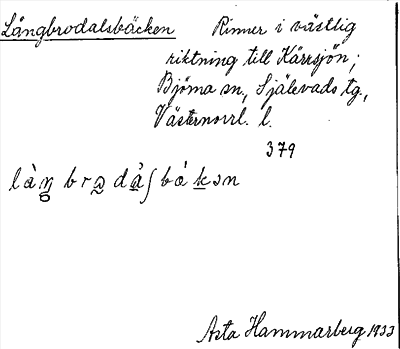 Långbrodalsbäcken Rinner i västlig
riktning till Kärrsjön;
Björna sn, Själevads tg.,
Västernorrl. l.
379
Asta Hammarberg 1933